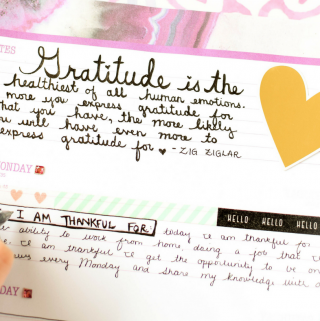 TES
Gratitude is the
healthiest of all human emotions.
more you express gratitude for
hat you have, the more likely
ou will have even more to
express gratitude for ♥ - ZIG ZIGLAR
ONDAY
HELLO HELLO HELLO
I AM THANKFUL FOR: today I am thankful for
ability to work from home, doing a job that I
I am thankful I get the opportunity to be on
every Monday and share my knowledge with
DAY